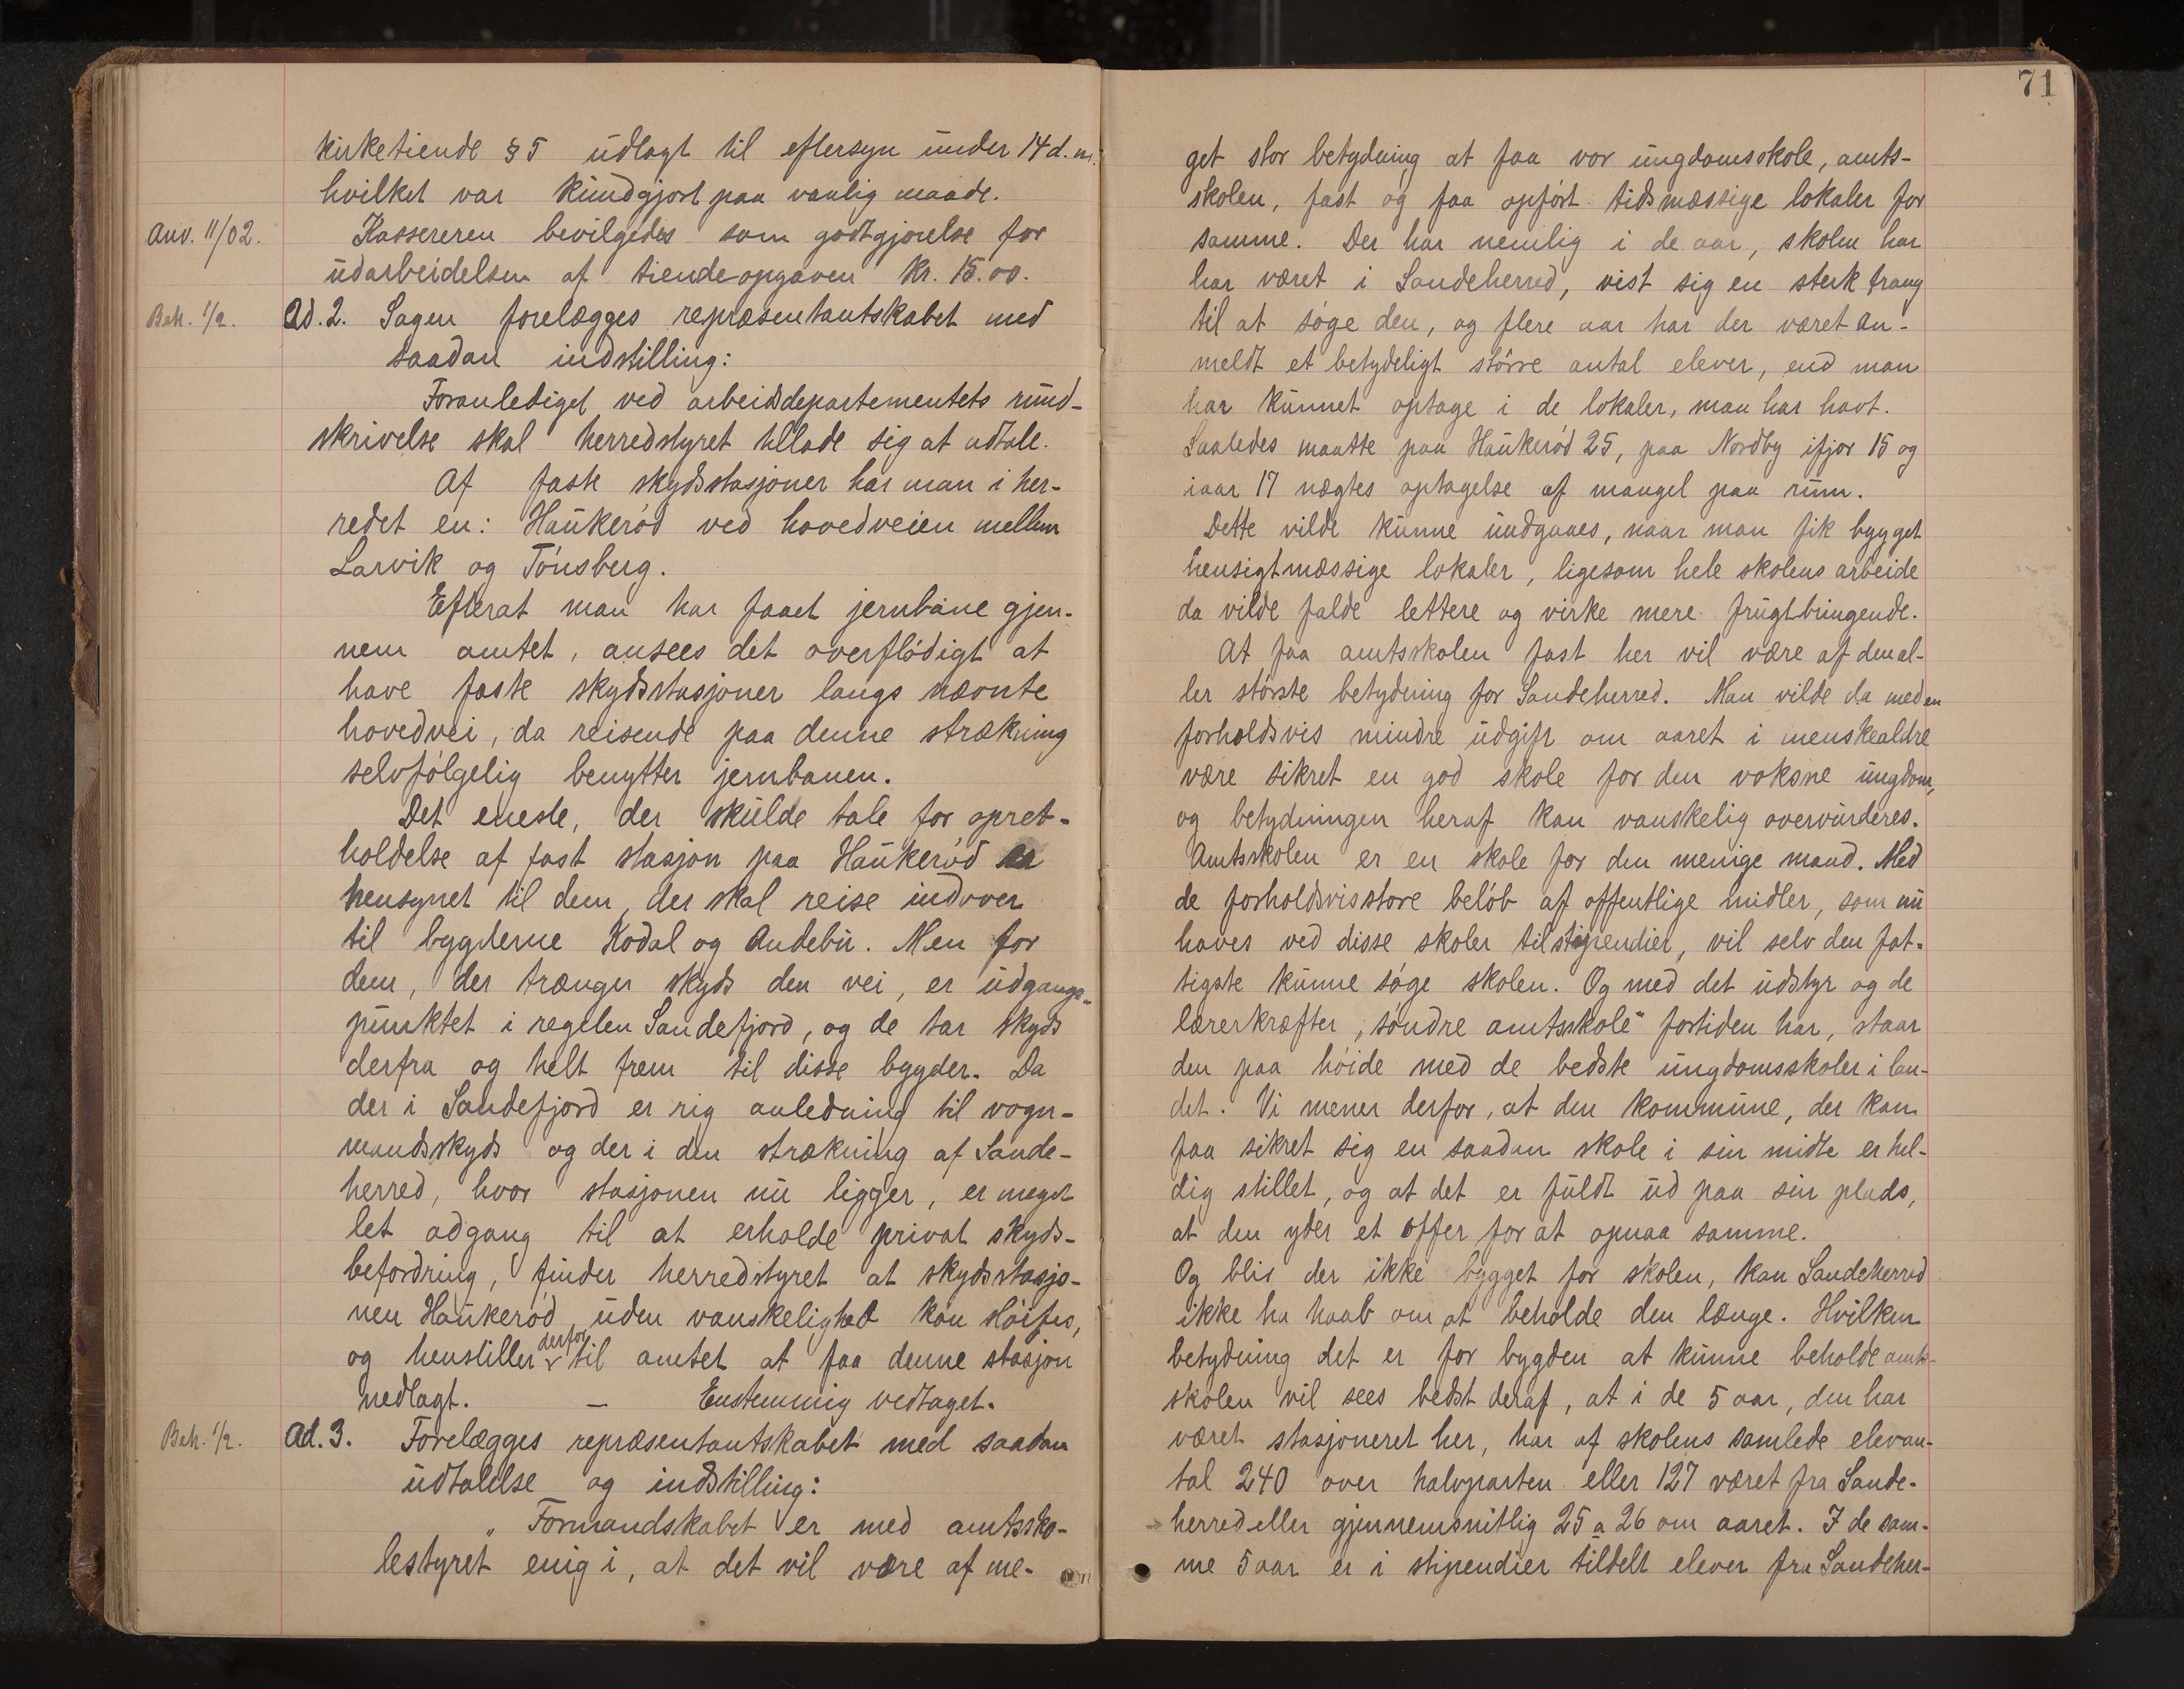 kirketiende § 5 udlagt til eftersyn under 14 d. m.
hvilket var kundgjort paa vanlig maade.
Anv. 11/02. Kassereren bevilgedes som godtgjørelse for
udarbeidelsen af tiendeopgaven kr. 15.00.
Beh. 1/2. Ad. 2. Sagen forelægges repræsentantskabet med
saadan indstilling:
Foranlediget ved arbeidsdepartementets rund-
skrivelse skal herredstyret tillade sig at udtale.
Af faste skydsstasjoner har man i her-
redet en: Haukerød ved hovedveien mellem
Larvik og Tønsberg.
Efterat man har faaet jernbane gjen-
nem amtet, ansees det overflødigt at
have faste skydsstasjoner langs nævnte
hovedvei, da reisende paa denne strækning
selvfølgelig benytter jernbanen.
Det eneste, der skulde tale for opret-
holdelse af fast stasjon paa Haukerød er
hensynet til dem, der skal reise indover
til bygderne Kodal og Andebu. Men for
dem, der trænger skyds den vei, er udgangs-
punktet i regelen Sandefjord, og de tar skyds
derfra og helt frem til disse bygder. Da
der i Sandefjord er rig anledning til vogn-
mandsskyds og der i den strækning af Sande-
herred, hvor stasjonen nu ligger, er meget
let adgang til at erholde privat skyds-
befordring, finder herredstyret at skydsstasjo-
nen Haukerød uden vanskelighed kan sløifes,
og henstiller derfor til amtet at faa denne stasjon
nedlagt. – Enstemmig vedtaget.
Beh. 1/2. Ad. 3. Forelægges repræsentantskabet med saadan
udtalelse og indstilling:
„Formandskabet er med amtssko-
lestyret enig i, at det vil være af me-
71
get stor betydning at faa vor ungdomsskole, amts-
skolen, fast og faa opført tidsmæssige lokaler for
samme. Der har nemlig i de aar, skolen har
har været i Sandeherred, vist sig en sterk trang
til at søge den, og flere aar har der været an-
meldt et betydeligt større antal elever, end man
har kunnet optage i de lokaler, man har havt.
Saaledes maatte paa Haukerød 25, paa Nordby ifjor 15 og
iaar 17 nægtes optagelse af mangel paa rum.
Dette vilde kunne undgaaes, naar man fik bygget
hensigtmæssige lokaler, ligesom hele skolens arbeide
da vilde falde lettere og virke mere frugtbringende.
At faa amtsskolen fast her vil være af den al-
ler største betydning for Sandeherred. Man vilde da med en
forholdsvis mindre udgift om aaret i menskealdre
være sikret en god skole for den voksne ungdom,
og betydningen heraf kan vanskelig overvurderes.
Amtsskolen er en skole for den menige mand. Med
de forholdsvis store beløb af offentlige midler, som nu
haves ved disse skoler til stipendier, vil selv den fat-
tigste kunne søge skolen. Og med det udstyr og de
lærerkræfter „søndre amtsskole" fortiden har, staar
den paa høide med de bedste ungdomsskoler i lan-
det. Vi mener derfor, at den kommune, der kan
faa sikret sig en saadan skole i sin midte er hel-
dig stillet, og at det er fuldt ud paa sin plads,
at den yder et offer for at opnaa samme.
Og blir der ikke bygget for skolen, kan Sandeherred
ikke ha haab om at beholde den længe. Hvilken
betydning det er for bygden at kunne beholde amts-
skolen vil sees bedst deraf, at i de 5 aar, den har
været stasjoneret her, har af skolens samlede elevan-
tal 240 over halvparten eller 127 været fra Sande-
herred eller gjennemsnitlig 25 a 26 om aaret. I de sam-
me 5 aar er i stipendier tildelt elever fra Sandeher-